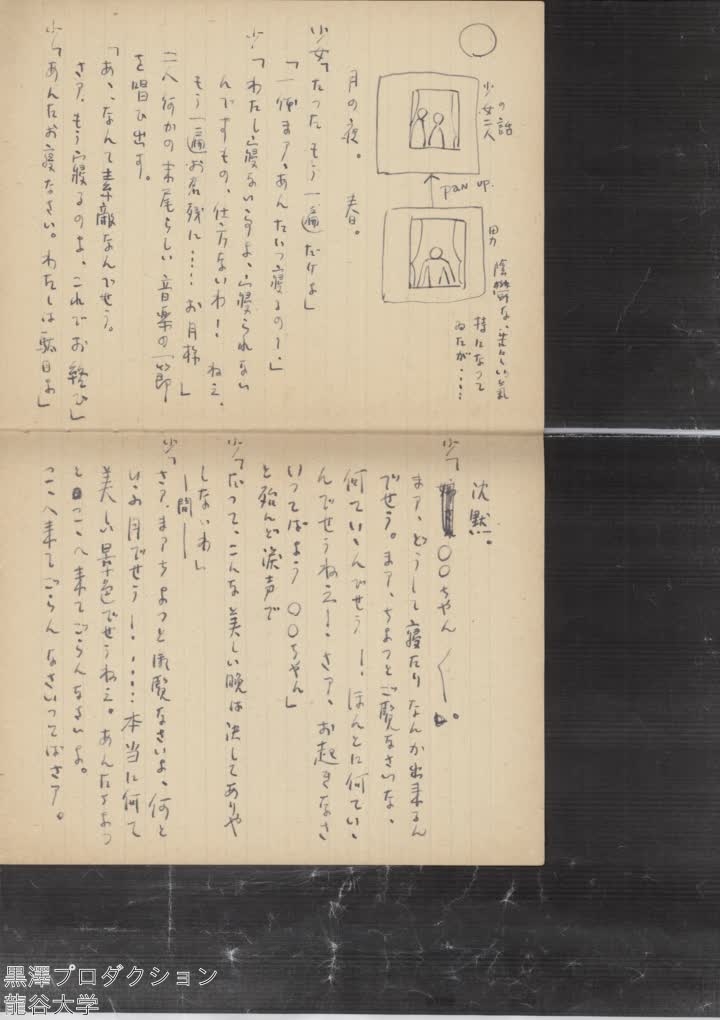 少女二人
の話
pan up.
男
陰鬱な、
持になって
ゐたが・・・・
月の夜。 春。
少女「たったもう一遍だけよ」
「一体まア、あんたいつ寝るの!」
少「わたし寝ないらすよ、寝られない
んですもの、仕方ないわ! ねえ、
もう一遍お名残に・・・・・お月様」
二人何かの末尾らしい音楽の一節
を唱ひ出す。
「あゝ、なんて素敵なんでせう。
さア、もう寝るのよ、これでお終ひ」
少「あんたお寝なさい。わたしは駄目よ」
沈黙。
少「〇〇ちゃん
まア、どうして寝たりなんか出来るん
でせう。まア、ちょっとご覧なさいな、
何ていゝんでせう!、ほんとに何ていゝ
んでせうねえ!、さア、お起きなさ
いってばよう 〇〇ちゃん」
と殆んど涙声で
少「だって、こんな美しい晩は決してありゃ
しないわ」
―間―
少「さア、まアちょっと御覧なさいよ、何と
いふ月でせう!・・・・・本当に何て
美しい景色でせうねえ。あんたちょっ
とこゝへ来てごらんなさいよ。
こゝへ来てごらんなさいってばさア。
黒澤プロダクション
龍谷大学